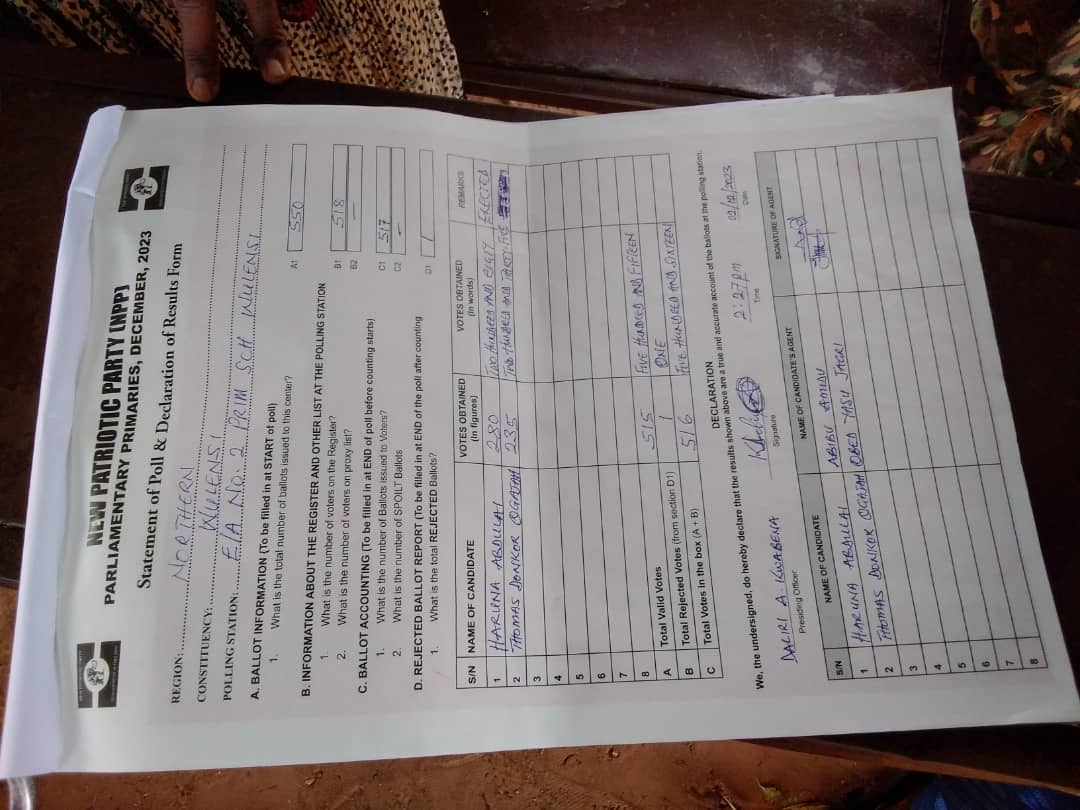 NEW PATRIOTIC PARTY (NPP)
PARLIAMENTARY PRIMARIES, DECEMBER, 2023
Statement of Poll & Declaration of Results Form
REGION: NORTHERN
CONSTITUENCY: WULENSI
POLLING STATION: E/A No. 2 PRIM SCH WULENSI
A. BALLOT INFORMATION (To be filled in at START of poll)
1. What is the total number of ballots issued to this center? A1 550
B. INFORMATION ABOUT THE REGISTER AND OTHER LIST AT THE POLLING STATION
1. What is the number of voters on the Register? B1 518
2. What is the number of voters on proxy list? B2 –
C. BALLOT ACCOUNTING (To be filled in at END of poll before counting starts)
1. What is the number of Ballots issued to Voters? C1 517
2. What is the number of SPOILT Ballots C2 –
D. REJECTED BALLOT REPORT (To be filled in at END of the poll after counting
1. What is the total REJECTED Ballots? D1 1
S/N NAME OF CANDIDATE VOTES OBTAINED (in figures) VOTES OBTAINED (in words) REMARKS
1 HARUNA ABDULLAI 280 TWO HUNDRED AND EIGHTY ELECTED
2 THOMAS DONKOR OGAJAH 235 TWO HUNDRED AND THIRTY-FIVE
3
4
5
6
7
8
A Total Valid Votes 515 FIVE HUNDRED AND FIFTEEN
B Total Rejected Votes (from section D1) 1 ONE
C Total Votes in the box (A + B) 516 FIVE HUNDRED AND SIXTEEN
DECLARATION
We, the undersigned, do hereby declare that the results shown above are a true and accurate account of the ballots at the polling station.
DAKIRI A. KWABENA 2:27PM 02/12/2023
Presiding Officer Signature Time Date
S/N NAME OF CANDIDATE NAME OF CANDIDATE'S AGENT SIGNATURE OF AGENT
1 HARUNA ABDULLAI ABIBU AMIDU
2 THOMAS DONKOR OGAJAH OBED YASU JAGRI
3
4
5
6
7
8